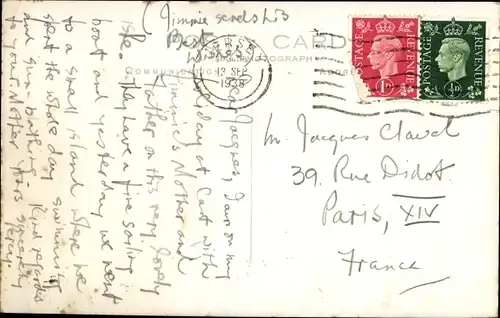 Jimmie sends his
Best
Wishes
POST CARD
PHOTOGRAPH
COMMUNICATION
ADDRESS
12 SEP
1938
POSTAGE REVENUE
1D
POSTAGE REVENUE
½D
Dear Jacques, I am on my
holiday at East with
Jimmie's Mother and
Father on this very lovely
isle. They have a fine sailing
boat and yesterday we went
to a small island where we
spent the whole day swimming
and sun-bathing. Kind regards
to your Mother. Yours sincerely
Percy.
M. Jacques Clavel
39. Rue Didot.
Paris, XIV
France